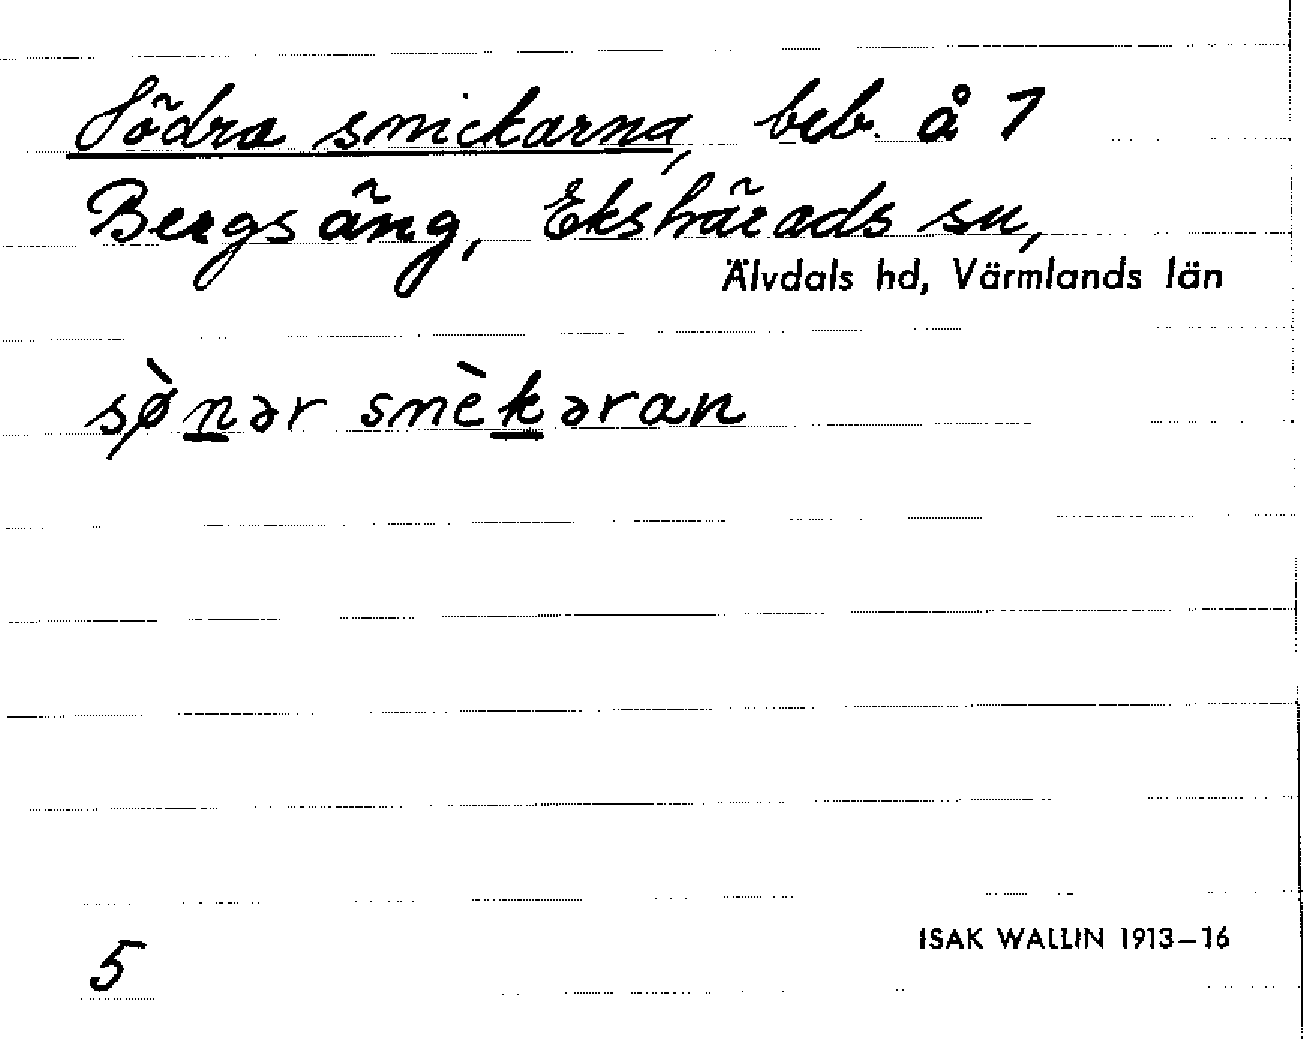 Södra snickarna, beb. å 7
Bergsäng, Ekshärads sn,
Älvdals hd, Värmlands län
sø̀nər snèkəran
5
ISAK WALLIN 1913–16